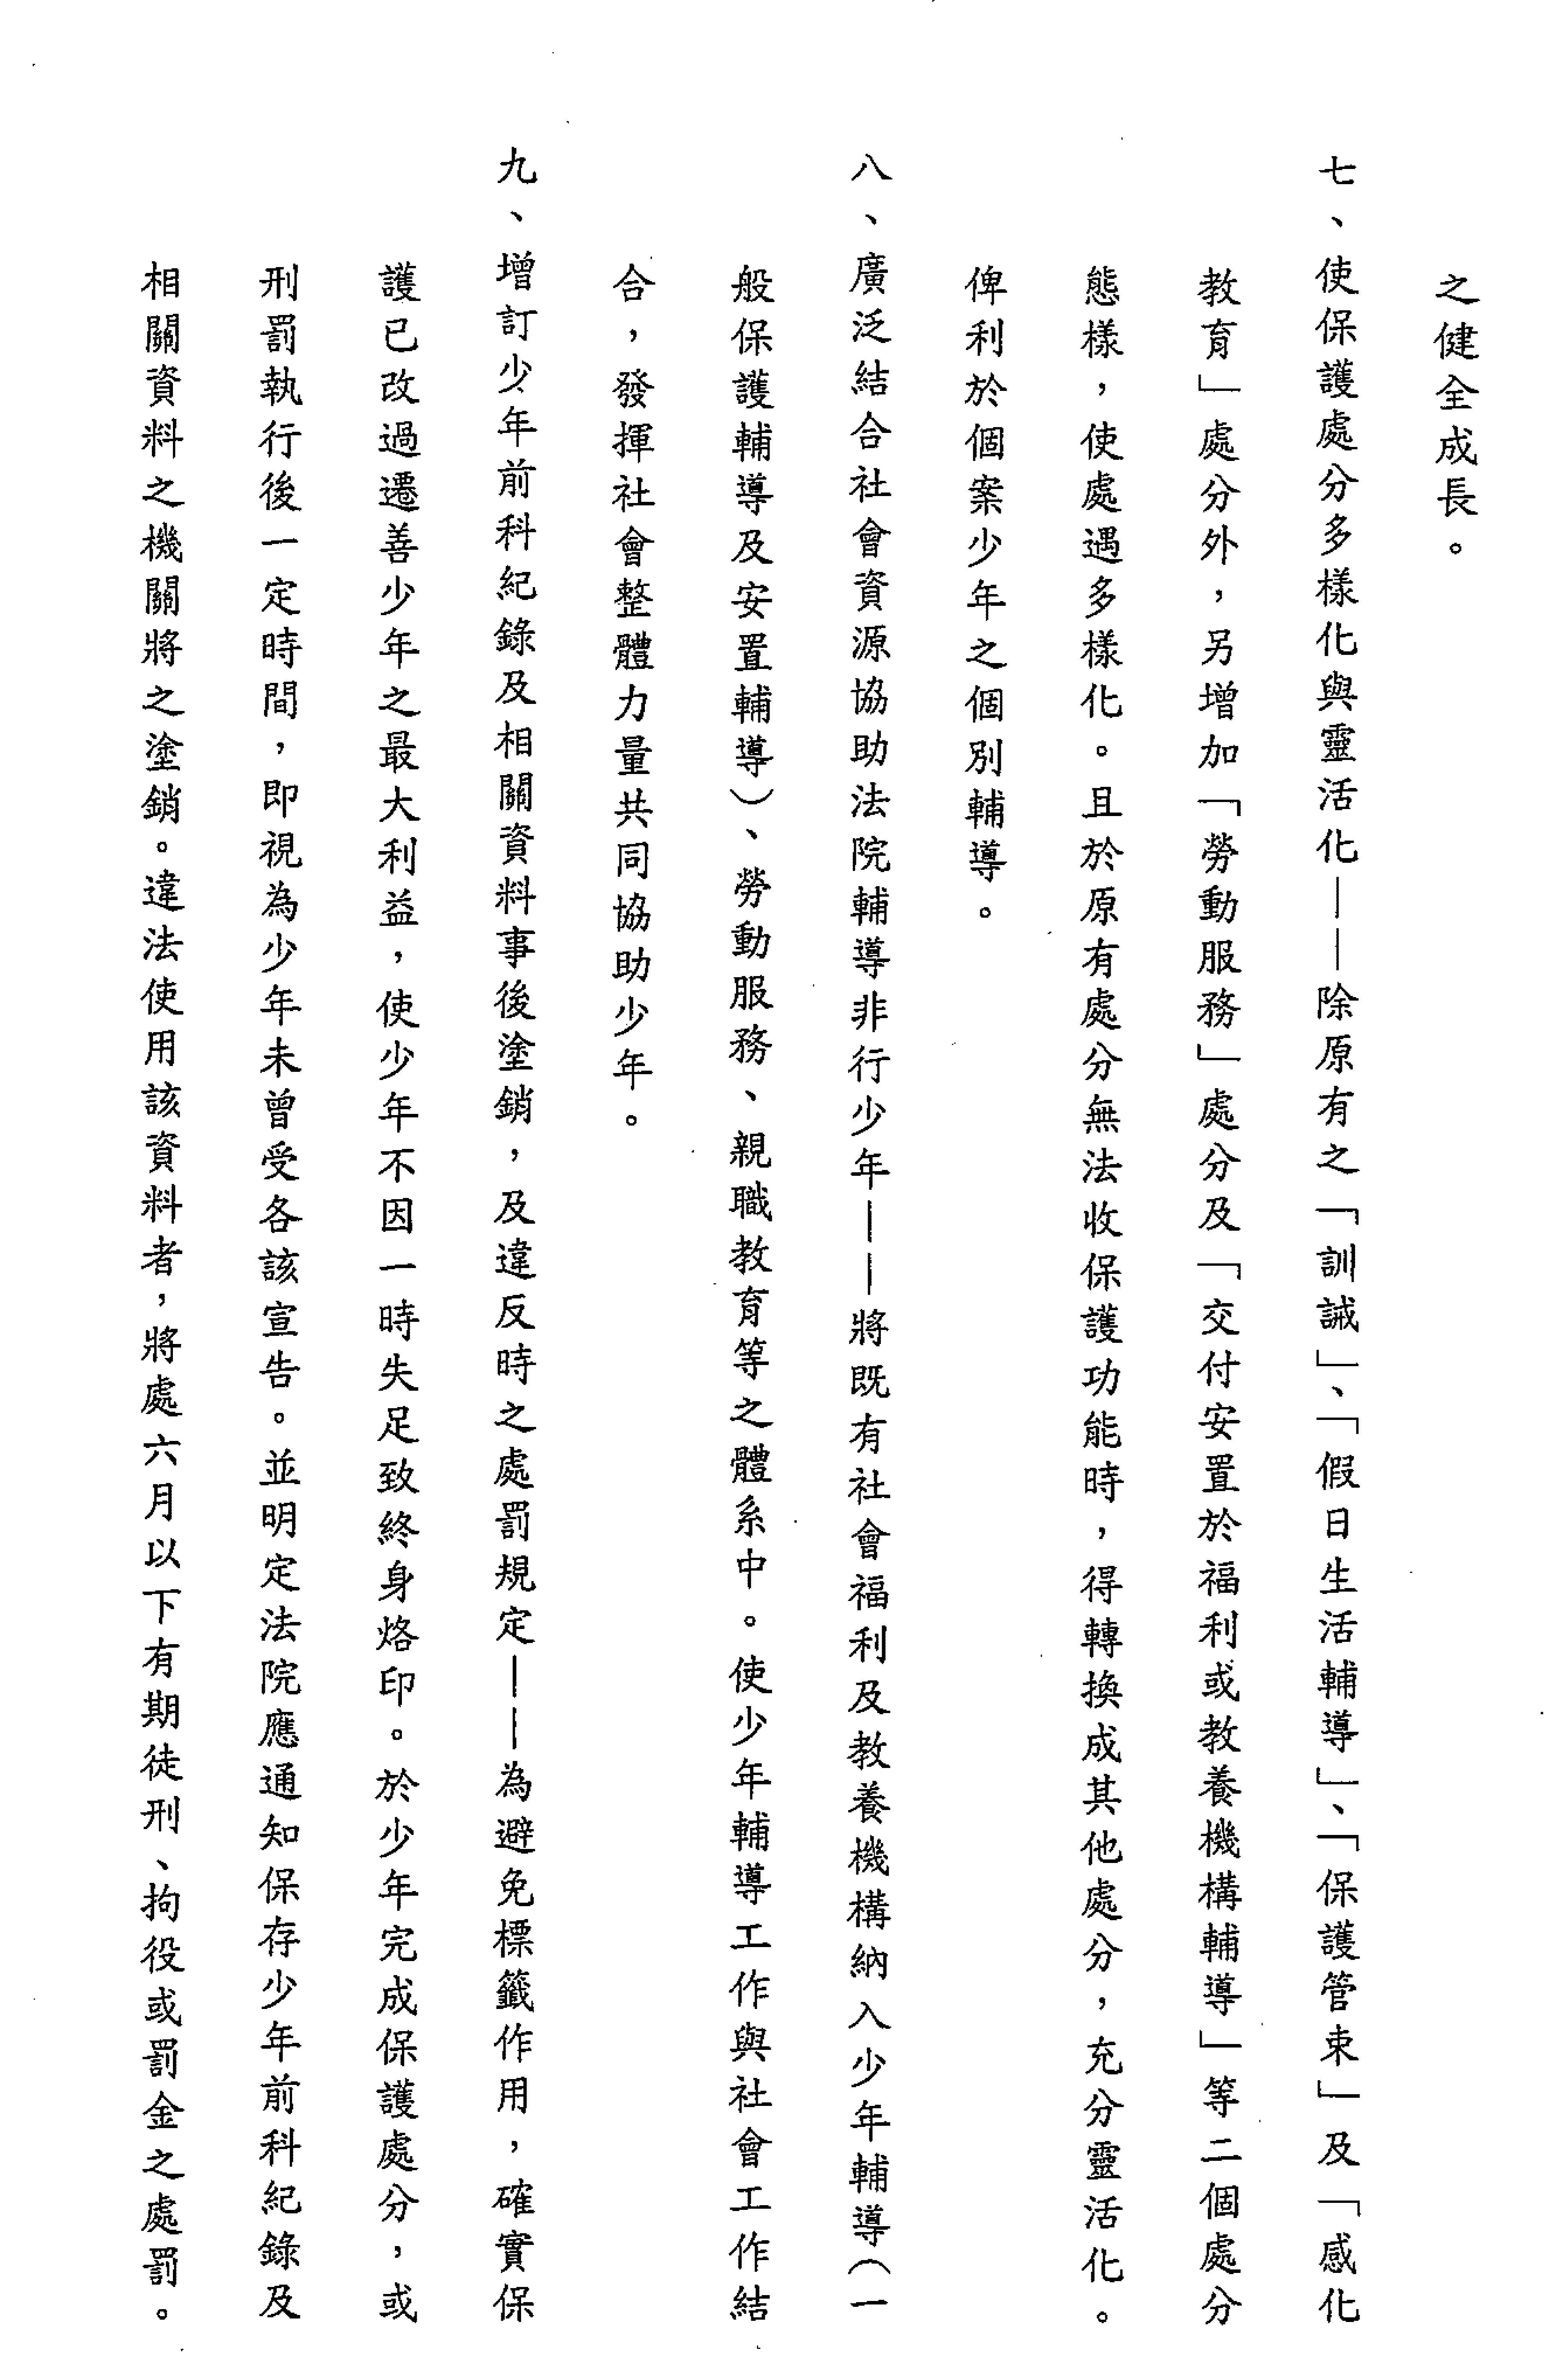 之健全成長。
七、使保護處分多樣化與靈活化——除原有之「訓誡」、「假日生活輔導」、「保護管束」及「感化
教育」處分外，另增加「勞動服務」處分及「交付安置於福利或教養機構輔導」等二個處分
態樣，使處遇多樣化。且於原有處分無法收保護功能時，得轉換成其他處分，充分靈活化。
俾利於個案少年之個別輔導。
八、廣泛結合社會資源協助法院輔導非行少年——將既有社會福利及教養機構納入少年輔導（一
般保護輔導及安置輔導）、勞動服務、親職教育等之體系中。使少年輔導工作與社會工作結
合，發揮社會整體力量共同協助少年。
九、增訂少年前科紀錄及相關資料事後塗銷，及違反時之處罰規定——為避免標籤作用，確實保
護已改過遷善少年之最大利益，使少年不因一時失足致終身烙印。於少年完成保護處分，或
刑罰執行後一定時間，即視為少年未曾受各該宣告。並明定法院應通知保存少年前科紀錄及
相關資料之機關將之塗銷。違法使用該資料者，將處六月以下有期徒刑、拘役或罰金之處罰。